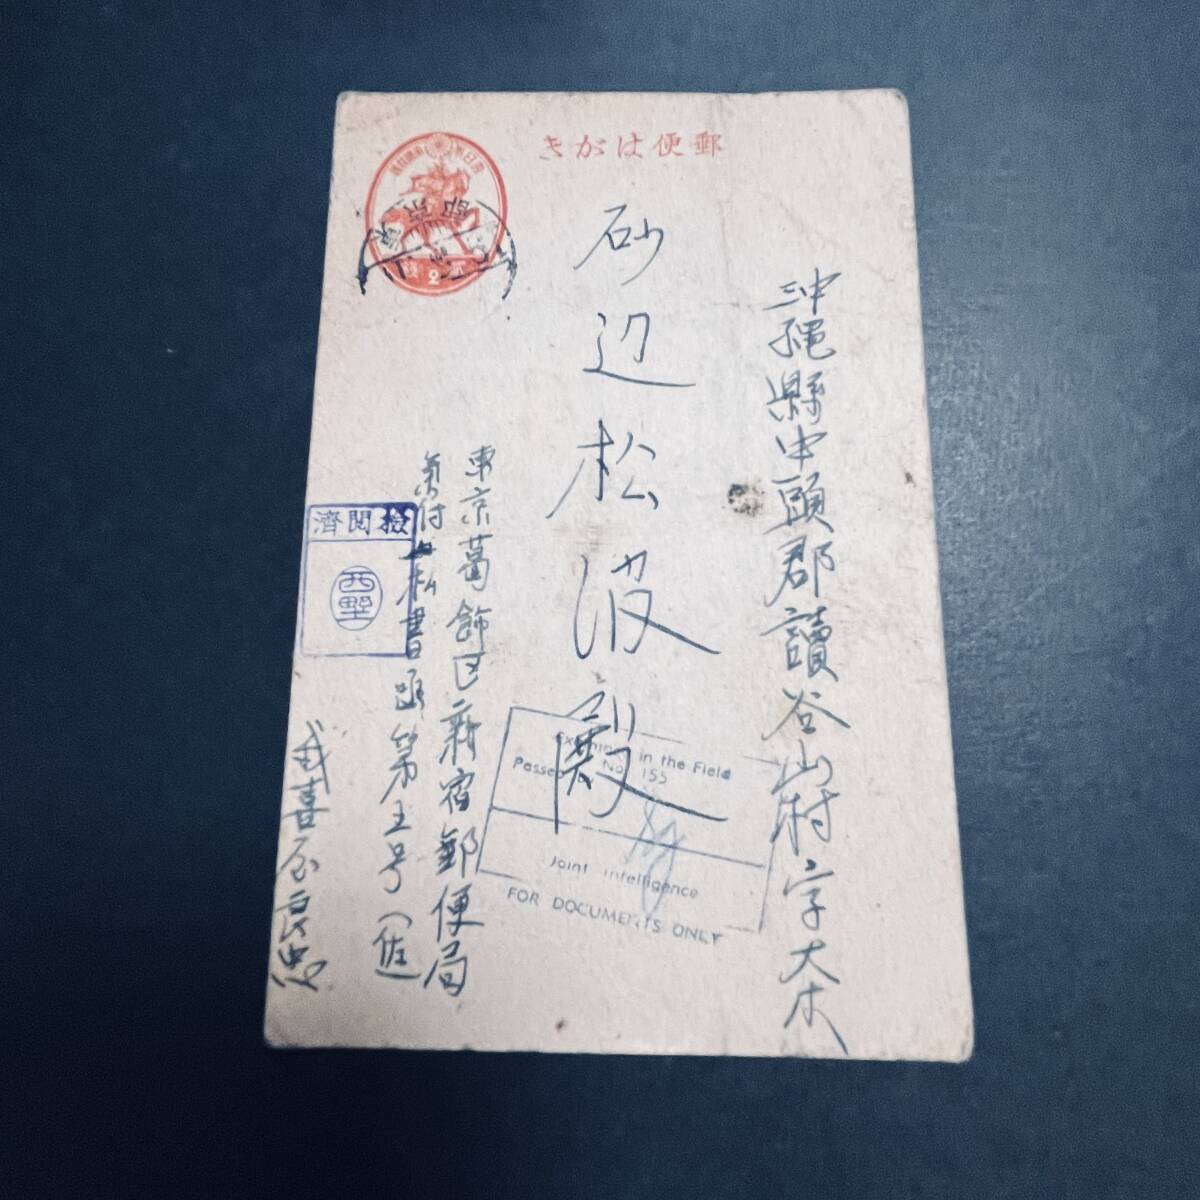 郵便はがき
沖縄縣中頭郡讀谷山村字大木
砂辺松波殿
東京葛飾区新宿郵便局
気付 私書函第五号(佐)
喜屋良忠
檢閲濟
西野
in the Field
Passed by No 155
Joint Intelligence
FOR DOCUMENTS ONLY